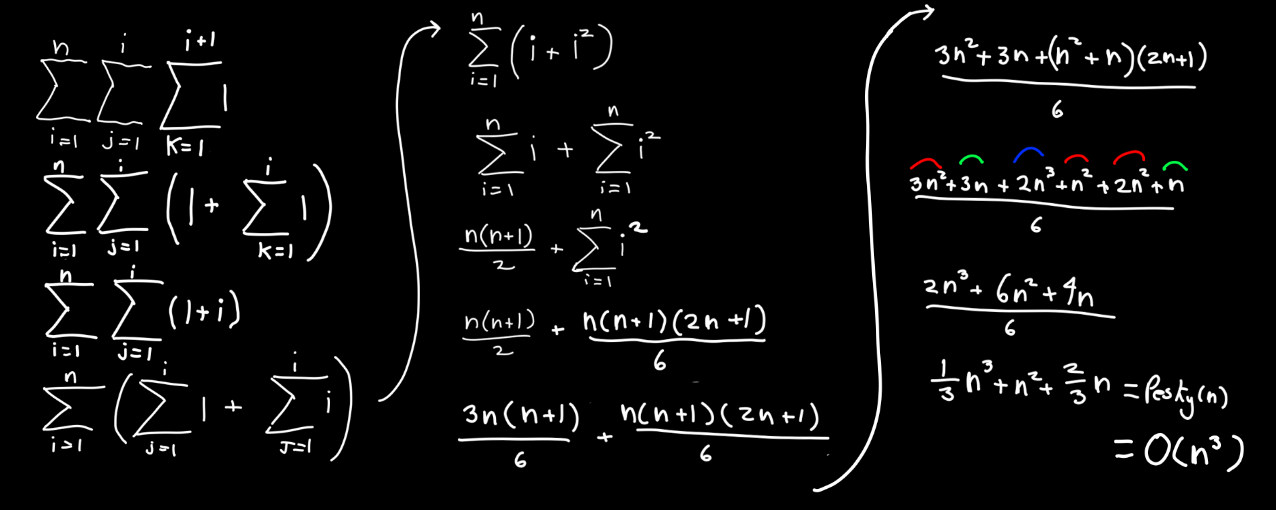 $\sum_{i=1}^{n} \sum_{j=1}^{i} \sum_{k=1}^{i+1} 1$
$\sum_{i=1}^{n} \sum_{j=1}^{i} \left(1 + \sum_{k=1}^{i} 1\right)$
$\sum_{i=1}^{n} \sum_{j=1}^{i} (1+i)$
$\sum_{i=1}^{n} \left(\sum_{j=1}^{i} 1 + \sum_{j=1}^{i} i\right)$
$\sum_{i=1}^{n} (i + i^2)$
$\sum_{i=1}^{n} i + \sum_{i=1}^{n} i^2$
$\frac{n(n+1)}{2} + \sum_{i=1}^{n} i^2$
$\frac{n(n+1)}{2} + \frac{n(n+1)(2n+1)}{6}$
$\frac{3n(n+1)}{6} + \frac{n(n+1)(2n+1)}{6}$
$\frac{3n^2+3n+(n^2+n)(2n+1)}{6}$
$\frac{3n^2+3n+2n^3+n^2+2n^2+n}{6}$
$\frac{2n^3+6n^2+4n}{6}$
$\frac{1}{3}n^3+n^2+\frac{2}{3}n = Pesky(n)$
$= O(n^3)$